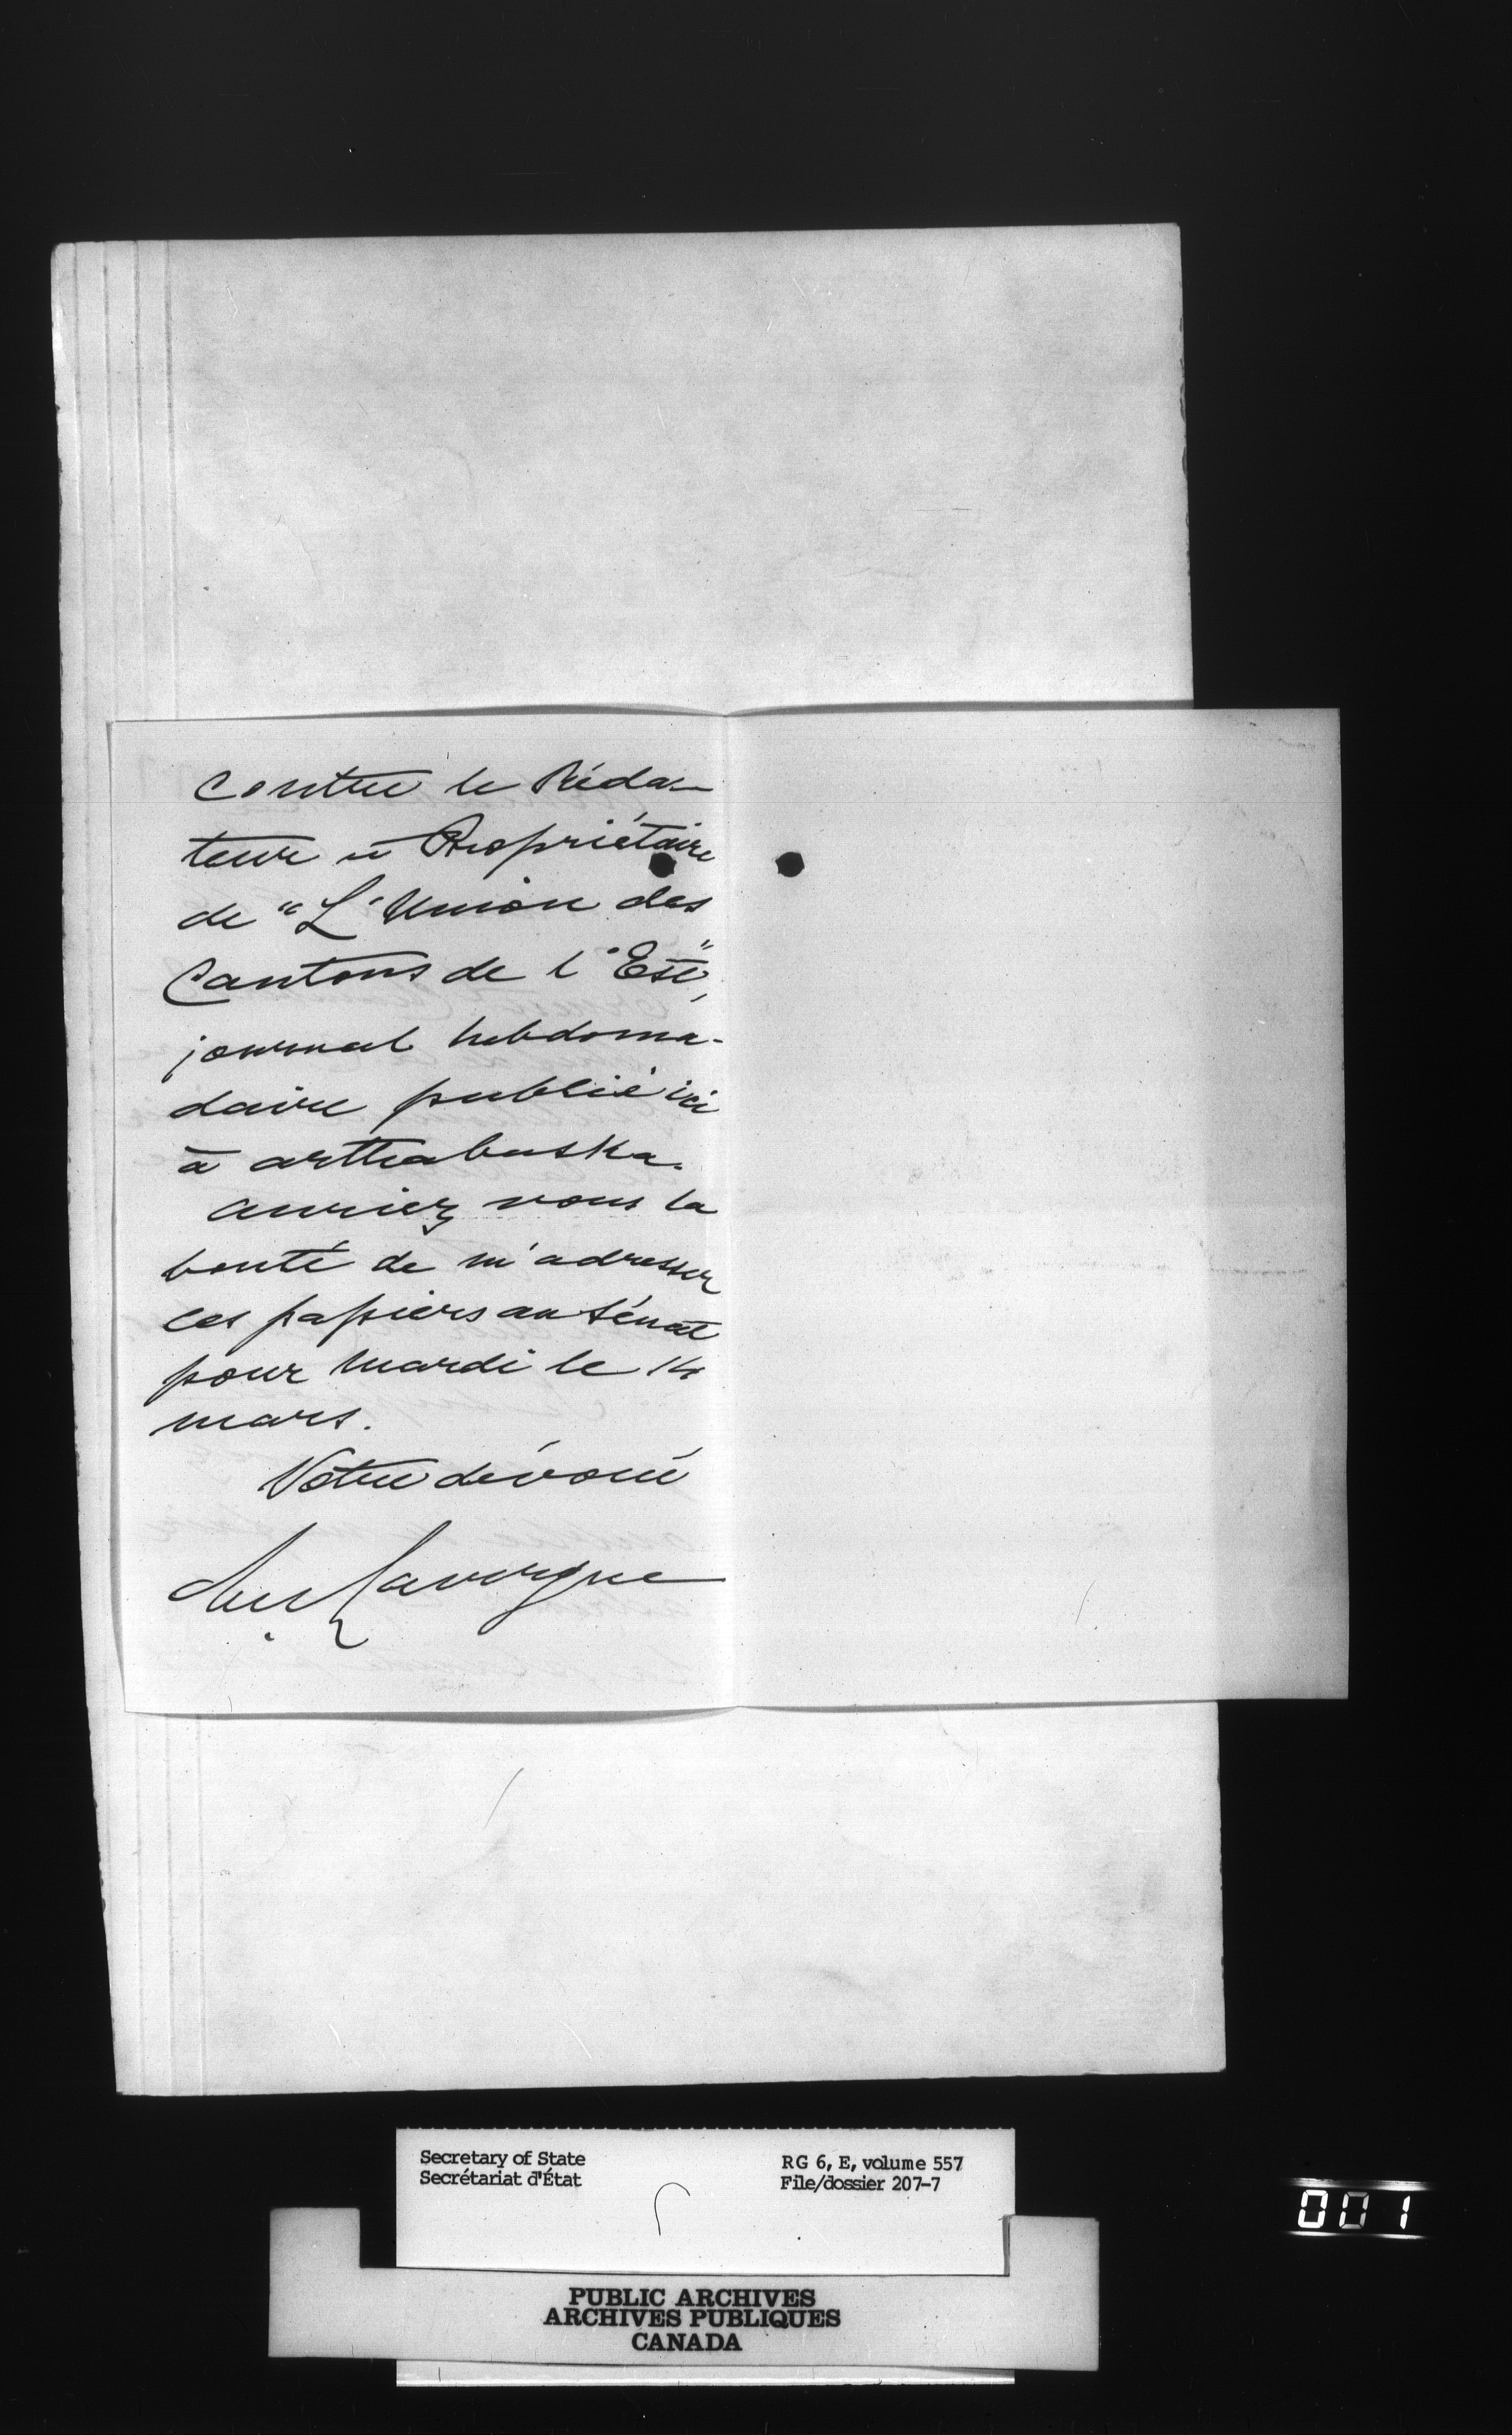 contre le Rédac-
teur et Propriétaire
de "L'Union des
Cantons de l'Est",
journal hebdoma-
daire publié ici
à arthabaska.
auriez vous la
bonté de m'adresser
ces papiers au Sénat
pour mardi le 14
mars.
Votre dévoué
Lavergne
Secretary of State
Secrétariat d'État
RG 6, E, volume 557
File/dossier 207-7
001
PUBLIC ARCHIVES
ARCHIVES PUBLIQUES
CANADA